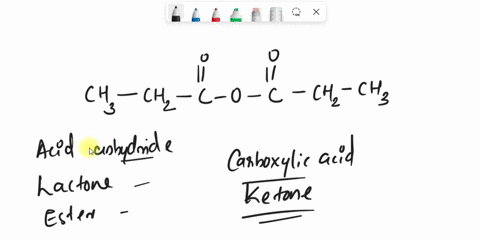 O O
CH3 — CH2 — C — O — C — CH2 — CH3
Acid anhydride
Lactone —
Ester —
Carboxylic acid
Ketone